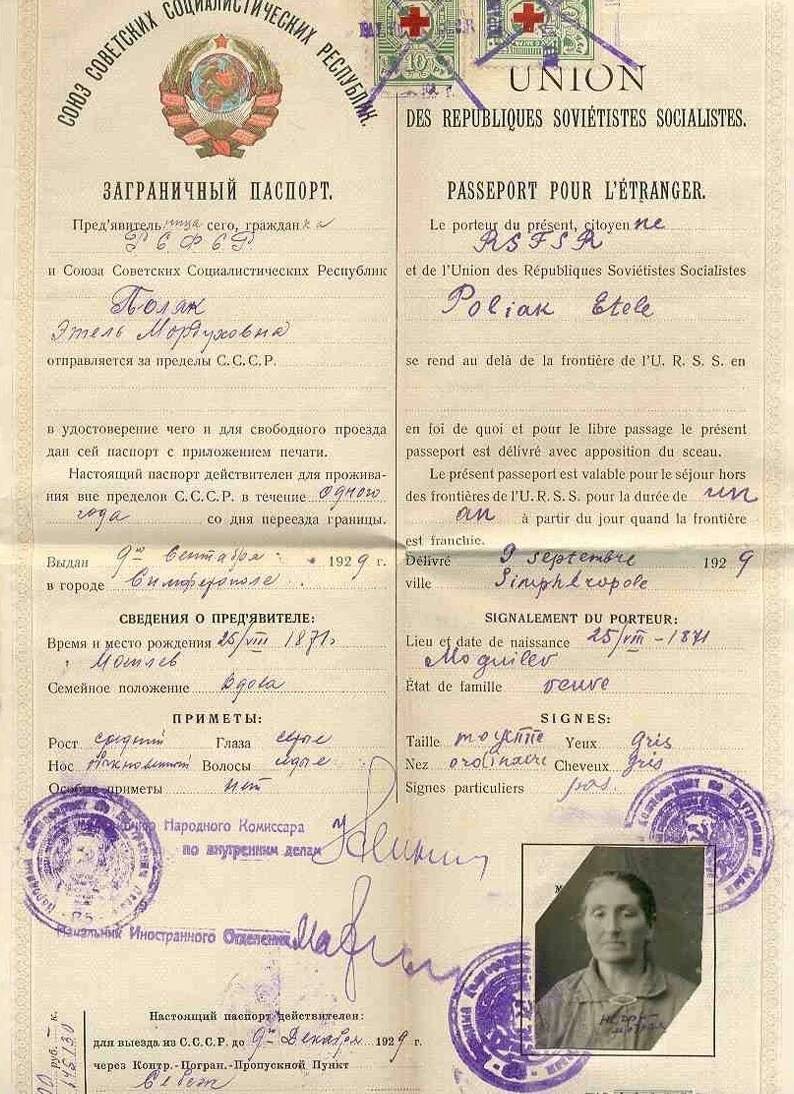 СОЮЗ СОВЕТСКИХ СОЦИАЛИСТИЧЕСКИХ РЕСПУБЛИК.
10
UNION
DES REPUBLIQUES SOVIÉTISTES SOCIALISTES.
ЗАГРАНИЧНЫЙ ПАСПОРТ.
Пред'явительница сего, гражданка
РСФСР
и Союза Советских Социалистических Республик
Поляк
Этель Мордуховна
отправляется за пределы С.С.С.Р.
в удостоверение чего и для свободного проезда
дан сей паспорт с приложением печати.
Настоящий паспорт действителен для прожива-
ния вне пределов С.С.С.Р. в течение одного
года со дня переезда границы.
Выдан 9го Сентября 1929 г.
в городе Симферополе
СВЕДЕНИЯ О ПРЕД'ЯВИТЕЛЕ:
Время и место рождения 25/VIII 1871
Могилев
Семейное положение Вдова
ПРИМЕТЫ:
Рост средний Глаза серые
Нос обыкновенный Волосы седые
Особые приметы нет
PASSEPORT POUR L'ÉTRANGER.
Le porteur du présent, citoyenne
RSFSR
et de l'Union des Républiques Soviétistes Socialistes
Poliak Etele
se rend au delà de la frontière de l'U. R. S. S. en
en foi de quoi et pour le libre passage le présent
passeport est délivré avec apposition du sceau.
Le présent passeport est valable pour le séjour hors
des frontières de l'U. R. S. S. pour la durée de un
an à partir du jour quand la frontière
est franchie.
Délivré 9 septembre 1929
ville Simphéropole
SIGNALEMENT DU PORTEUR:
Lieu et date de naissance 25/VIII-1871
Moguilev
État de famille veuve
SIGNES:
Taille moyenne Yeux gris
Nez ordinaire Cheveux gris
Signes particuliers pas.
Народного Комиссара
по внутренним делам
Начальник Иностранного Отделения
Настоящий паспорт действителен:
для выезда из С.С.С.Р. до 9го Декабря 1929 г.
через Контр.-Погран.-Пропускной Пункт
Себеж
руб. к.